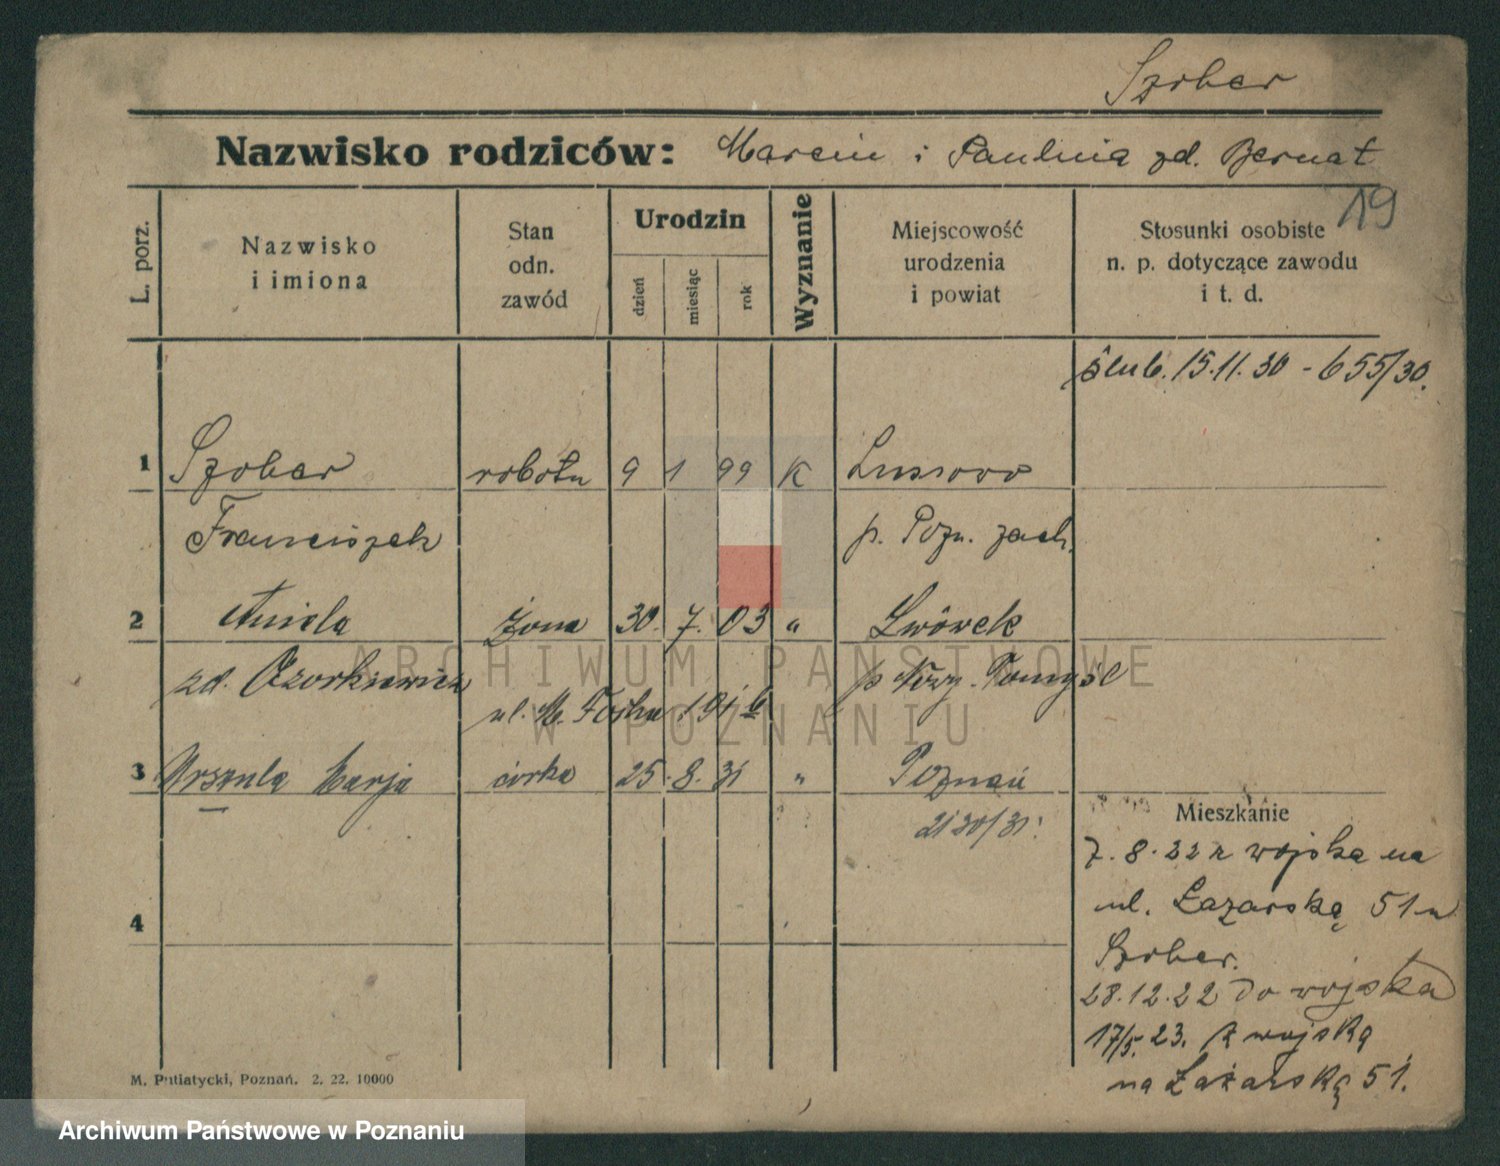 Szober
Nazwisko rodziców: Marcin i Paulina zd. Bernat
19
L. porz.
Nazwisko i imiona
Stan odn. zawód
Urodzin
dzień
miesiąc
rok
Wyznanie
Miejscowość urodzenia i powiat
Stosunki osobiste n. p. dotyczące zawodu i t. d.
ślub. 15.11.30 - 655/30.
1 Szober robotn 9 1 99 K Lussowo
Franciszek p. Pozn. zach.
2 Aniela żona 30. 7. 03 " Lwówek
zd. p Nowy-Tomyśl
ul. M. Focha 191
3 Urszula Marja córka 25. 8. 31 " Poznań
2130/31.
Mieszkanie
7. 8. 22 z wojska na
ul. Łazarską 51 u
Szober.
28.12.22 do wojska
4
17/5. 23. z wojska
na Łazarską 51.
M. Putiatycki, Poznań. 2. 22. 10000
ARCHIWUM PAŃSTWOWE
W POZNANIU
Archiwum Państwowe w Poznaniu